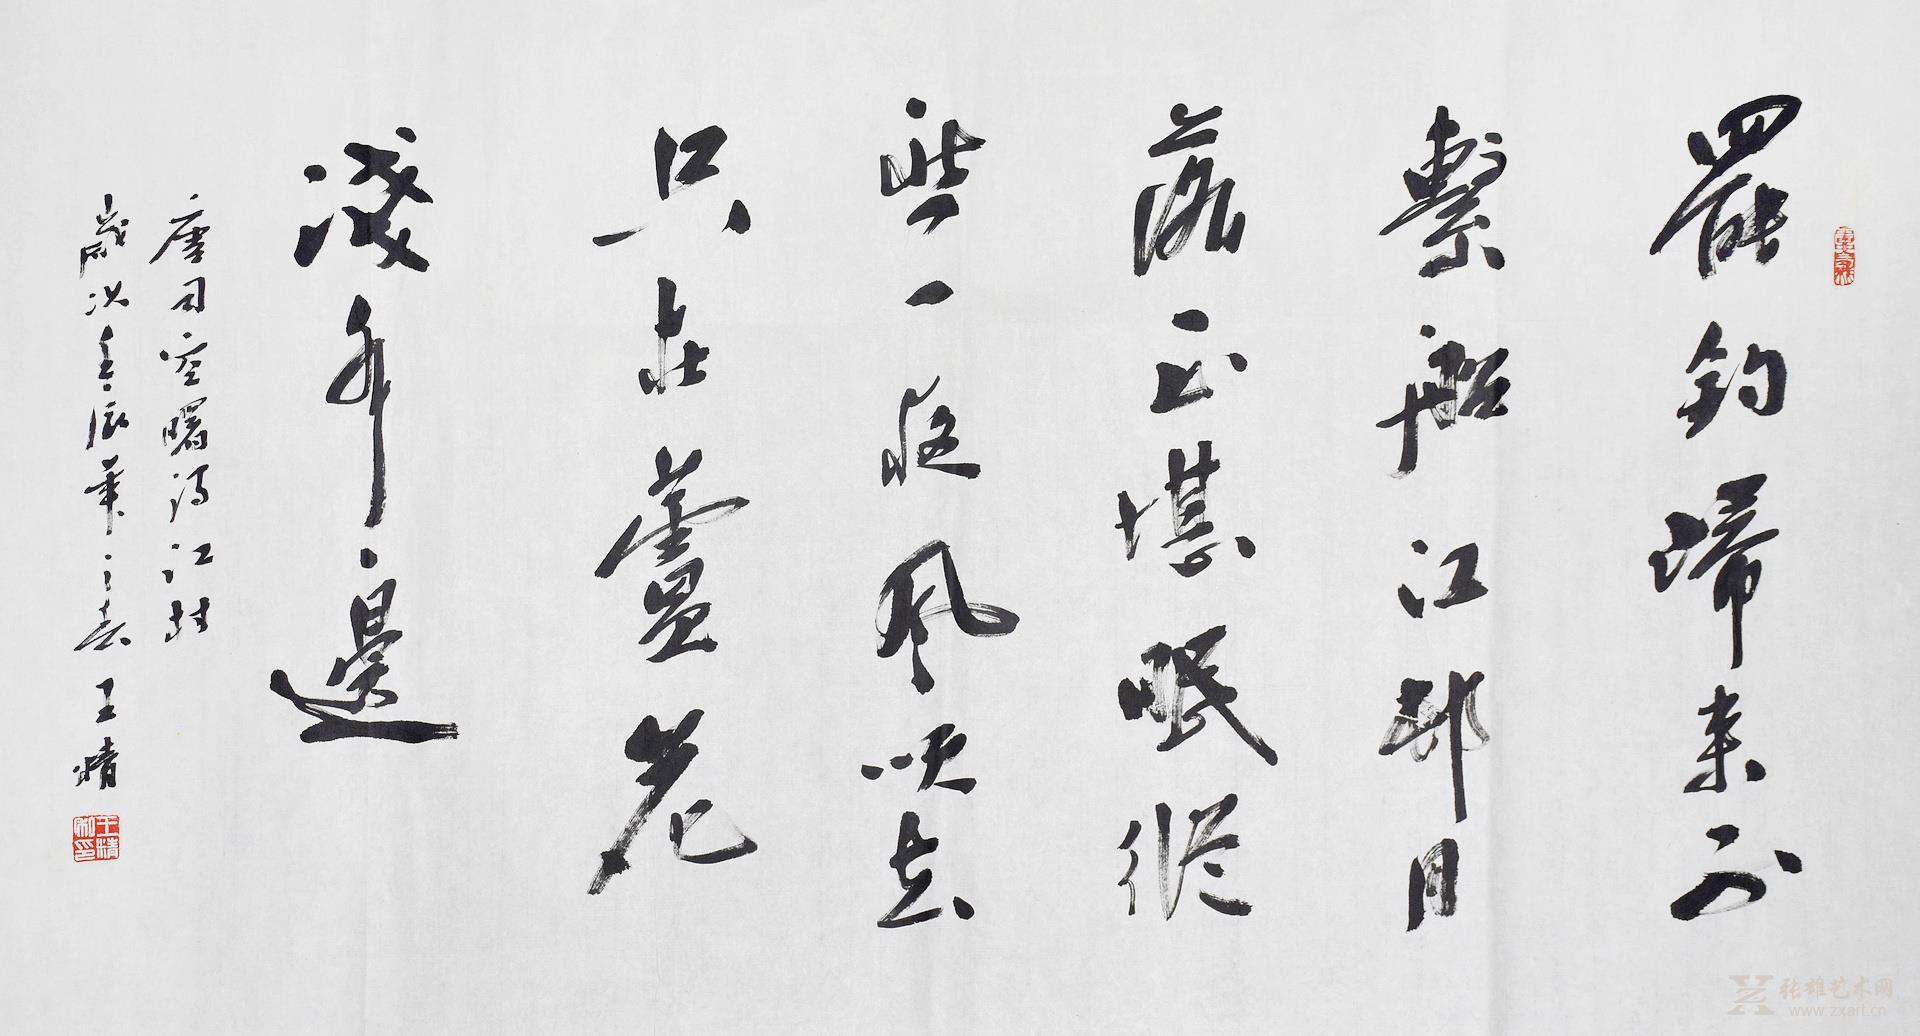 罷釣歸來不
繫船江邨月
落正堪眠縱
然一夜風吹去
只在蘆花
淺水邊
唐司空曙詩江村
歲次壬辰年之春 王
张雄艺术网
www.zxart.cn